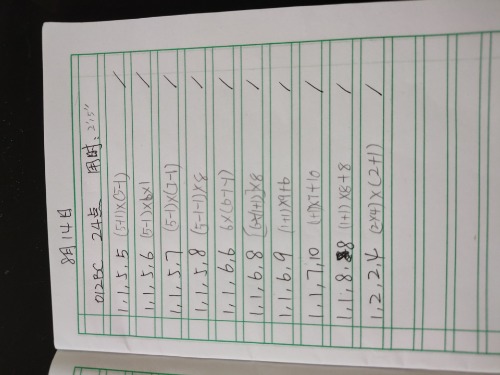 8月14日
24点 用时: 2'5"
1,1,5,5 (5+1)×(5-1) /
1,1,5,6 (5-1)×6×1 /
1,1,5,7 (5-1)×(7-1) /
1,1,5,8 (5-1-1)×8 /
1,1,6,6 6×(6-1-1) /
1,1,6,8 [6÷(1+1)]×8 /
1,1,6,9 (1+1)×9+6 /
1,1,7,10 (1+1)×7+10 /
1,1,8,8 (1+1)×8+8 /
1,2,2,4 (2×4)×(2+1) /